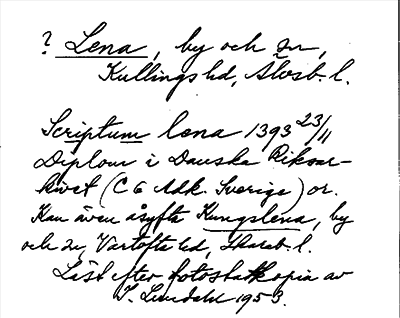 ? Lena, by och sn,
Kullings hd, Älvsb. l.
Scriptum lena 1393 23/11
Diplom i Danska Riksar-
kivet (C 6 Adk. Sverige) or.
Kan även åsyfta Kungslena, by
och sn, Vartofta hd, Skarab. l.
Läst efter fotostatkopia av
I. Lundahl 1953.